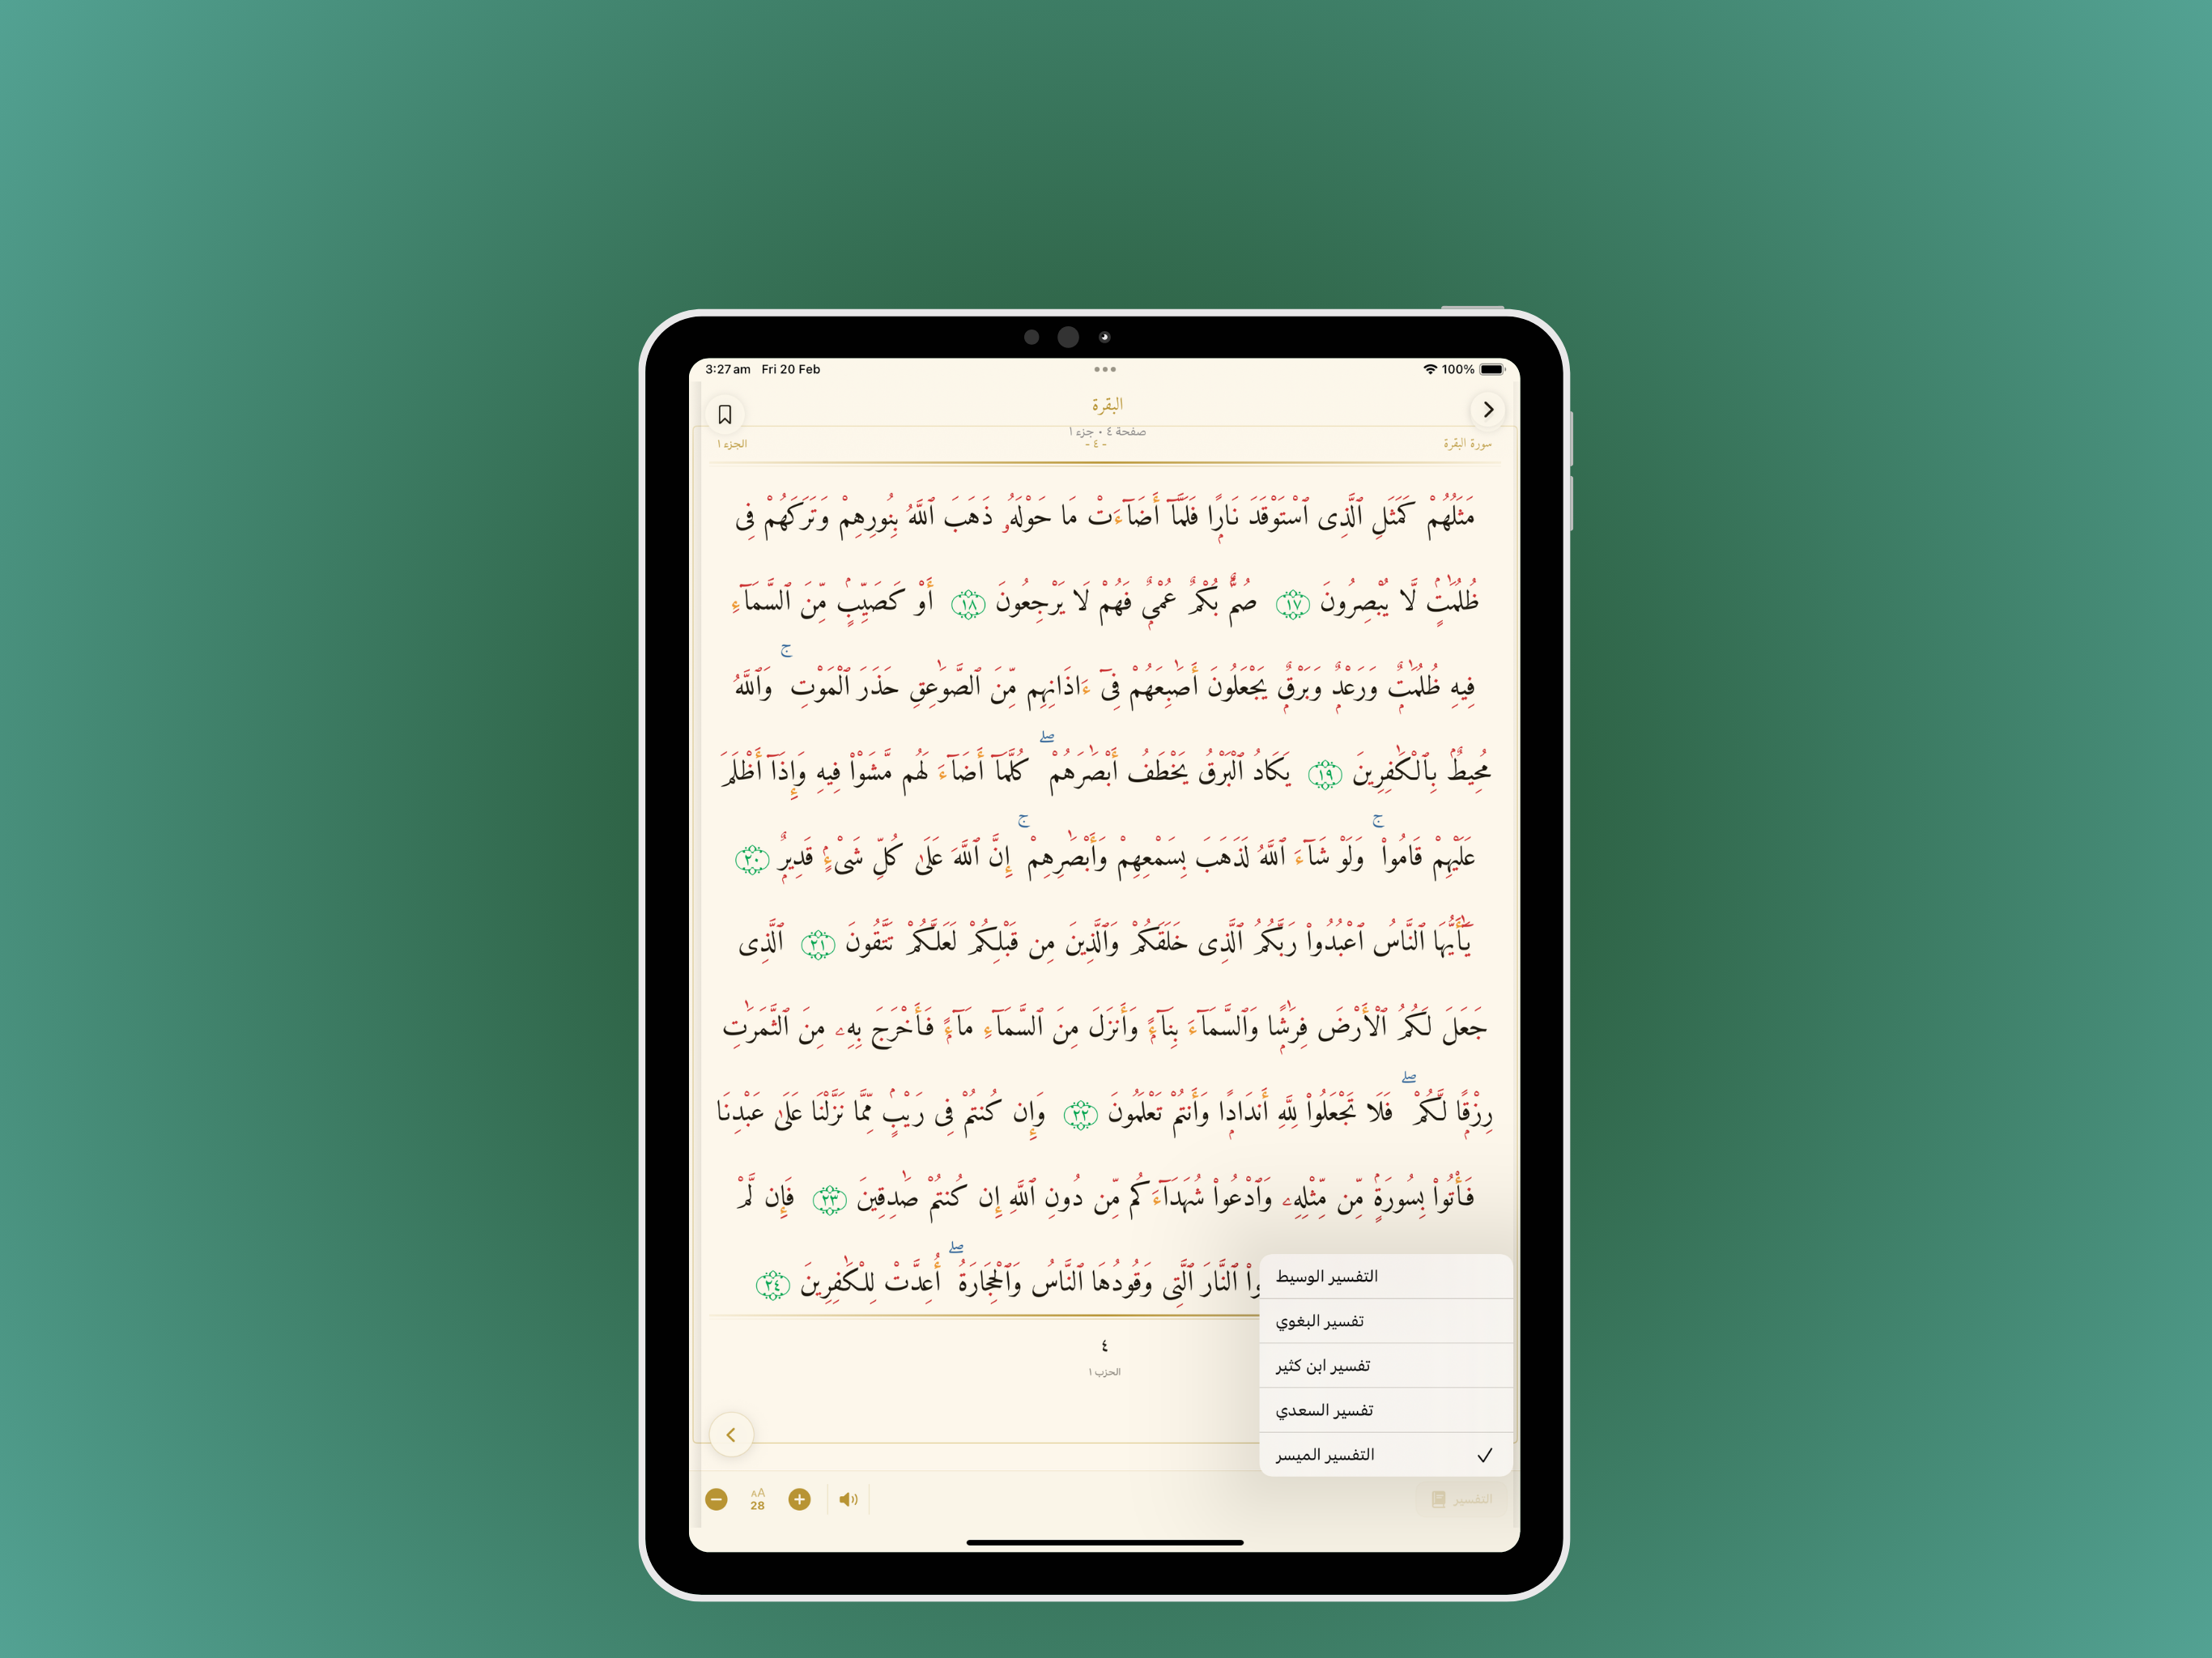 3:27 am Fri 20 Feb 100%
البقرة
صفحة ٤ • جزء ١
سورة البقرة - ٤ - الجزء ١
مَثَلُهُمْ كَمَثَلِ ٱلَّذِى ٱسْتَوْقَدَ نَارًۭا فَلَمَّآ أَضَآءَتْ مَا حَوْلَهُۥ ذَهَبَ ٱللَّهُ بِنُورِهِمْ وَتَرَكَهُمْ فِى
ظُلُمَٰتٍۢ لَّا يُبْصِرُونَ ١٧ صُمٌّۢ بُكْمٌ عُمْىٌۭ فَهُمْ لَا يَرْجِعُونَ ١٨ أَوْ كَصَيِّبٍۢ مِّنَ ٱلسَّمَآءِ
فِيهِ ظُلُمَٰتٌۭ وَرَعْدٌۭ وَبَرْقٌۭ يَجْعَلُونَ أَصَٰبِعَهُمْ فِىٓ ءَاذَانِهِم مِّنَ ٱلصَّوَٰعِقِ حَذَرَ ٱلْمَوْتِ ۚ وَٱللَّهُ
مُحِيطٌۢ بِٱلْكَٰفِرِينَ ١٩ يَكَادُ ٱلْبَرْقُ يَخْطَفُ أَبْصَٰرَهُمْ ۖ كُلَّمَآ أَضَآءَ لَهُم مَّشَوْا۟ فِيهِ وَإِذَآ أَظْلَمَ
عَلَيْهِمْ قَامُوا۟ ۚ وَلَوْ شَآءَ ٱللَّهُ لَذَهَبَ بِسَمْعِهِمْ وَأَبْصَٰرِهِمْ ۚ إِنَّ ٱللَّهَ عَلَىٰ كُلِّ شَىْءٍۢ قَدِيرٌۭ ٢٠
يَٰٓأَيُّهَا ٱلنَّاسُ ٱعْبُدُوا۟ رَبَّكُمُ ٱلَّذِى خَلَقَكُمْ وَٱلَّذِينَ مِن قَبْلِكُمْ لَعَلَّكُمْ تَتَّقُونَ ٢١ ٱلَّذِى
جَعَلَ لَكُمُ ٱلْأَرْضَ فِرَٰشًۭا وَٱلسَّمَآءَ بِنَآءًۭ وَأَنزَلَ مِنَ ٱلسَّمَآءِ مَآءًۭ فَأَخْرَجَ بِهِۦ مِنَ ٱلثَّمَرَٰتِ
رِزْقًۭا لَّكُمْ ۖ فَلَا تَجْعَلُوا۟ لِلَّهِ أَندَادًۭا وَأَنتُمْ تَعْلَمُونَ ٢٢ وَإِن كُنتُمْ فِى رَيْبٍۢ مِّمَّا نَزَّلْنَا عَلَىٰ عَبْدِنَا
فَأْتُوا۟ بِسُورَةٍۢ مِّن مِّثْلِهِۦ وَٱدْعُوا۟ شُهَدَآءَكُم مِّن دُونِ ٱللَّهِ إِن كُنتُمْ صَٰدِقِينَ ٢٣ فَإِن لَّمْ
ٱلنَّارَ ٱلَّتِى وَقُودُهَا ٱلنَّاسُ وَٱلْحِجَارَةُ ۖ أُعِدَّتْ لِلْكَٰفِرِينَ ٢٤
٤
الحزب ١
التفسير الوسيط
تفسير البغوي
تفسير ابن كثير
تفسير السعدي
التفسير الميسر
التفسير
AA
28